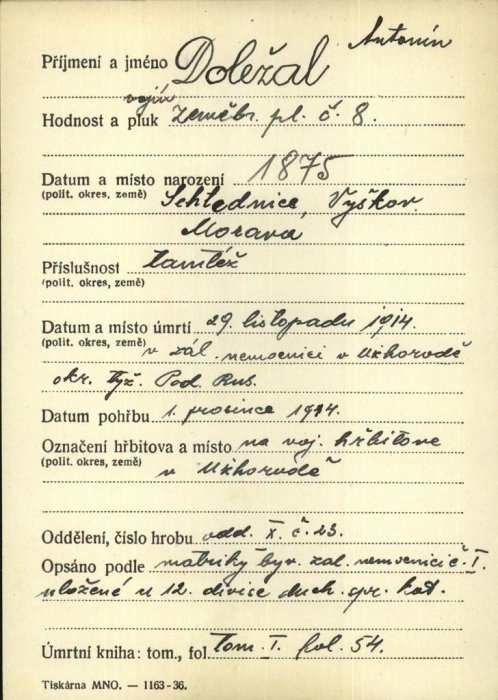 Příjmení a jméno Doležal Antonín
vojín
Hodnost a pluk zeměbr. pl. č. 8.
Datum a místo narození 1875
(polit. okres, země) Vyškov
Morava
Příslušnost tamtéž
(polit. okres, země)
Datum a místo úmrtí 29. listopadu 1914.
(polit. okres, země) v zál. nemocnici v Užhorodě
okr. týž. Pod. Rus.
Datum pohřbu 1. prosince 1914.
Označení hřbitova a místo na voj. hřbitově
(polit. okres, země) v Užhorodě
Oddělení, číslo hrobu odd. X. č. 23.
Opsáno podle matriky býv. zál. nemocnice č. I.
uložené u 12. divise duch. spr. kat.
Úmrtní kniha: tom., fol. tom. I. fol. 54.
Tiskárna MNO. — 1163-36.